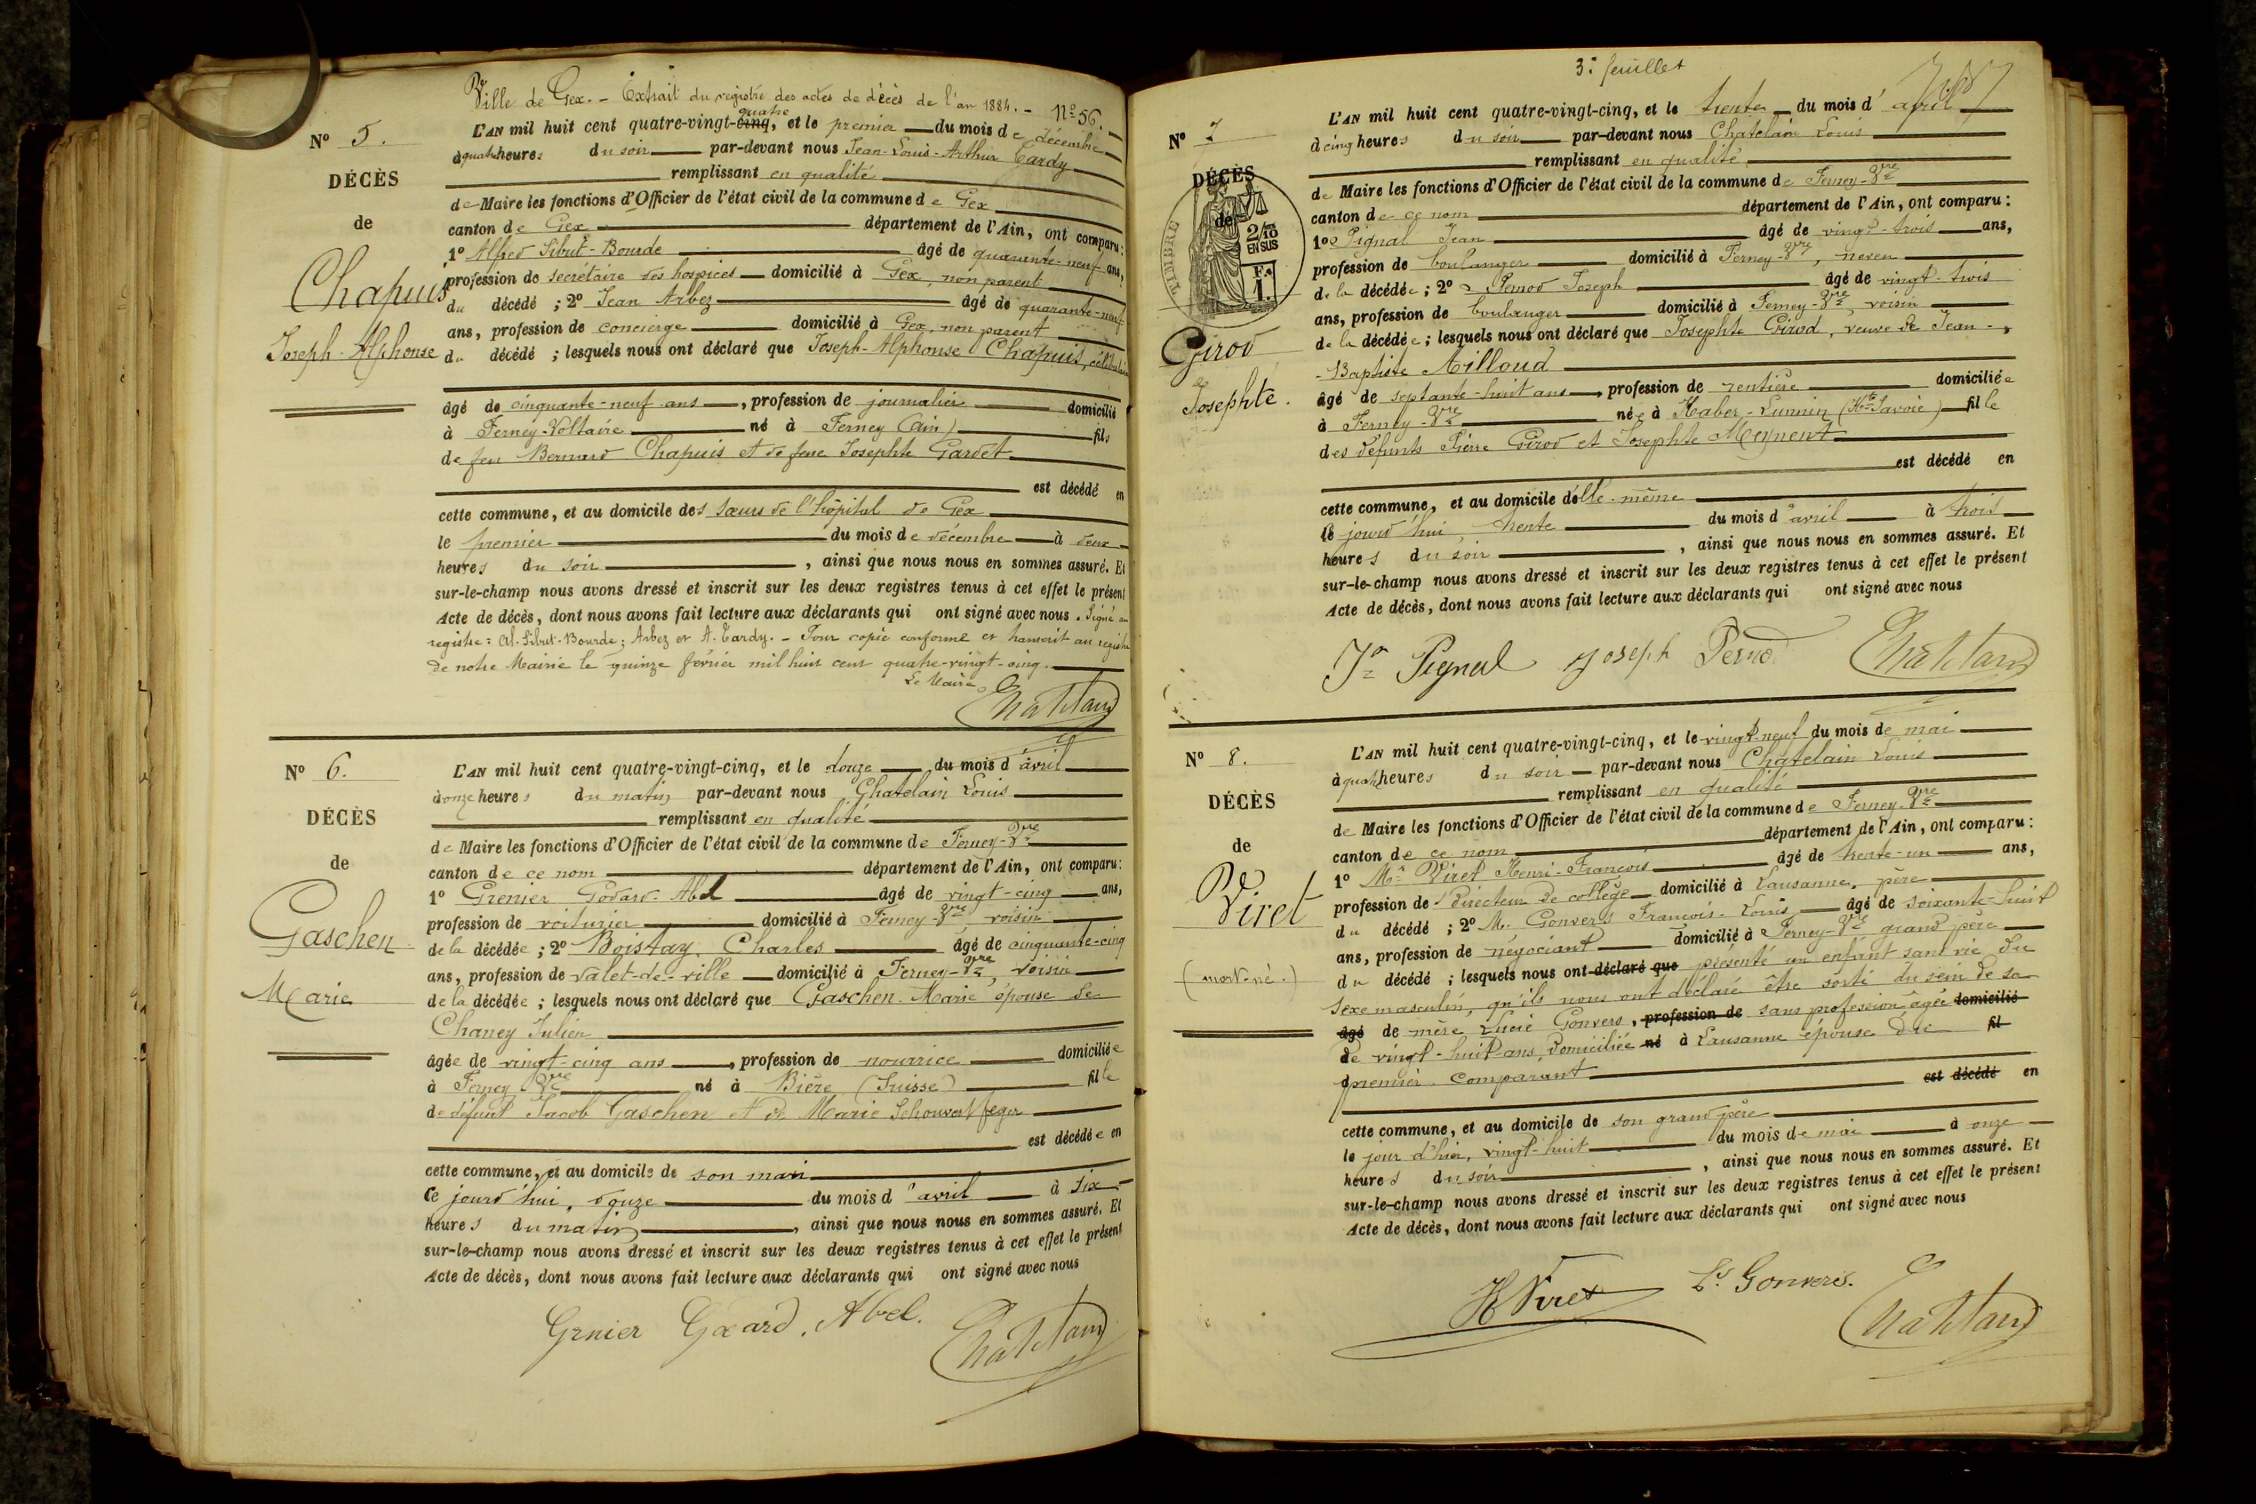 Ville de Gex. - Extrait du registre des actes de décès de l'an 1884. - N° 56.
N° 5.
DÉCÈS
de
Chapuis
Joseph-Alphonse
L'AN mil huit cent quatre-vingt-cinq quatre, et le premier du mois de décembre
à quatre heures du soir par-devant nous Jean-Louis-Arthur Tardy
remplissant en qualité
de Maire les fonctions d'Officier de l'état civil de la commune de Gex
canton de Gex département de l'Ain, ont comparu :
1° Alfred Sibut-Bourde âgé de quarante-neuf ans,
profession de secrétaire des hospices domicilié à Gex, non parent
du décédé ; 2° Jean Arbez âgé de quarante-neuf
ans, profession de concierge domicilié à Gex, non parent
du décédé ; lesquels nous ont déclaré que Joseph-Alphonse Chapuis, célibataire
âgé de cinquante-neuf ans, profession de journalier domicilié
à Ferney-Voltaire né à Ferney (Ain) fils
de feu Bernard Chapuis et de feue Josephte Gardet
est décédé en
cette commune, et au domicile des sœurs de l'hôpital de Gex
le premier du mois de décembre à deux
heures du soir, ainsi que nous nous en sommes assuré. Et
sur-le-champ nous avons dressé et inscrit sur les deux registres tenus à cet effet le présent
Acte de décès, dont nous avons fait lecture aux déclarants qui ont signé avec nous. Signé au
registre : Al. Sibut-Bourde ; Arbez et A. Tardy. - Pour copie conforme et transcrit au registre
de notre Mairie le quinze février mil huit cent quatre-vingt-cinq.
Le Maire
Chatelain
N° 6.
DÉCÈS
de
Gaschen
Marie
L'AN mil huit cent quatre-vingt-cinq, et le douze du mois d'avril
à onze heures du matin par-devant nous Chatelain Louis
remplissant en qualité
de Maire les fonctions d'Officier de l'état civil de la commune de Ferney-Vre
canton de ce nom département de l'Ain, ont comparu :
1° Grenier Godard-Abel âgé de vingt-cinq ans,
profession de voiturier domicilié à Ferney-Vre voisin
de la décédée ; 2° Boistay Charles âgé de cinquante-cinq
ans, profession de valet-de-ville domicilié à Ferney-Vre, voisin
de la décédée ; lesquels nous ont déclaré que Gaschen Marie épouse de
Chaney Julien
âgée de vingt-cinq ans, profession de nourrice domiciliée
à Ferney-Vre né à Bière (Suisse) fille
de défunt Jacob Gaschen et de Marie
est décédée en
cette commune, et au domicile de son mari
ce jourd'hui, douze du mois d'avril à six
heures du matin, ainsi que nous nous en sommes assuré. Et
sur-le-champ nous avons dressé et inscrit sur les deux registres tenus à cet effet le présent
Acte de décès, dont nous avons fait lecture aux déclarants qui ont signé avec nous
Grenier Godard. Abel. Chatelain
3e feuillet
N° 7
DÉCÈS
de
TIMBRE
2/10
EN SUS
F.
1.
Girod
Josephte.
L'AN mil huit cent quatre-vingt-cinq, et le trente du mois d'avril
à cinq heures du soir par-devant nous Chatelain Louis
remplissant en qualité
de Maire les fonctions d'Officier de l'état civil de la commune de Ferney-Vre
canton de ce nom département de l'Ain, ont comparu :
1° Pignal Jean âgé de vingt-trois ans,
profession de boulanger domicilié à Ferney-Vre, neveu
de la décédée ; 2° Pernod Joseph âgé de vingt-trois
ans, profession de boulanger domicilié à Ferney-Vre, voisin
de la décédée ; lesquels nous ont déclaré que Josephte Girod, veuve de Jean-
-Baptiste Milloud
âgé de septante-huit ans, profession de rentière domiciliée
à Ferney-Vre née à Haber-Lunnin (Hte Savoie) fille
des défunts Pierre Girod et Josephte Meynent
est décédé en
cette commune, et au domicile d'elle-même
le jourd'hui, trente du mois d'avril à trois
heures du soir, ainsi que nous nous en sommes assuré. Et
sur-le-champ nous avons dressé et inscrit sur les deux registres tenus à cet effet le présent
Acte de décès, dont nous avons fait lecture aux déclarants qui ont signé avec nous
Jn Pignal Joseph Pernod Chatelain
N° 8.
DÉCÈS
de
Viret
(mort-né.)
L'AN mil huit cent quatre-vingt-cinq, et le vingt-neuf du mois de mai
à quatre heures du soir par-devant nous Chatelain Louis
remplissant en qualité
de Maire les fonctions d'Officier de l'état civil de la commune de Ferney-Vre
canton de ce nom département de l'Ain, ont comparu :
1° Mr Viret Henri-François âgé de trente-un ans,
profession de Directeur de collège domicilié à Lausanne, père
du décédé ; 2° Mr Gonvers François-Louis âgé de soixante-huit
ans, profession de négociant domicilié à Ferney-Vre grand père
du décédé ; lesquels nous ont déclaré que présenté un enfant sans vie du
sexe masculin, qu'ils nous ont déclaré être sorti du sein de sa
âgé de mère Lucie Gonvers, profession de sans profession âgée domicilié
de vingt-huit ans, domiciliée né à Lausanne épouse du fil
premier comparant
est décédé en
cette commune, et au domicile de son grand père
le jour d'hier, vingt-huit du mois de mai à onze
heures du soir, ainsi que nous nous en sommes assuré. Et
sur-le-champ nous avons dressé et inscrit sur les deux registres tenus à cet effet le présent
Acte de décès, dont nous avons fait lecture aux déclarants qui ont signé avec nous
H Viret Ls Gonvers. Chatelain